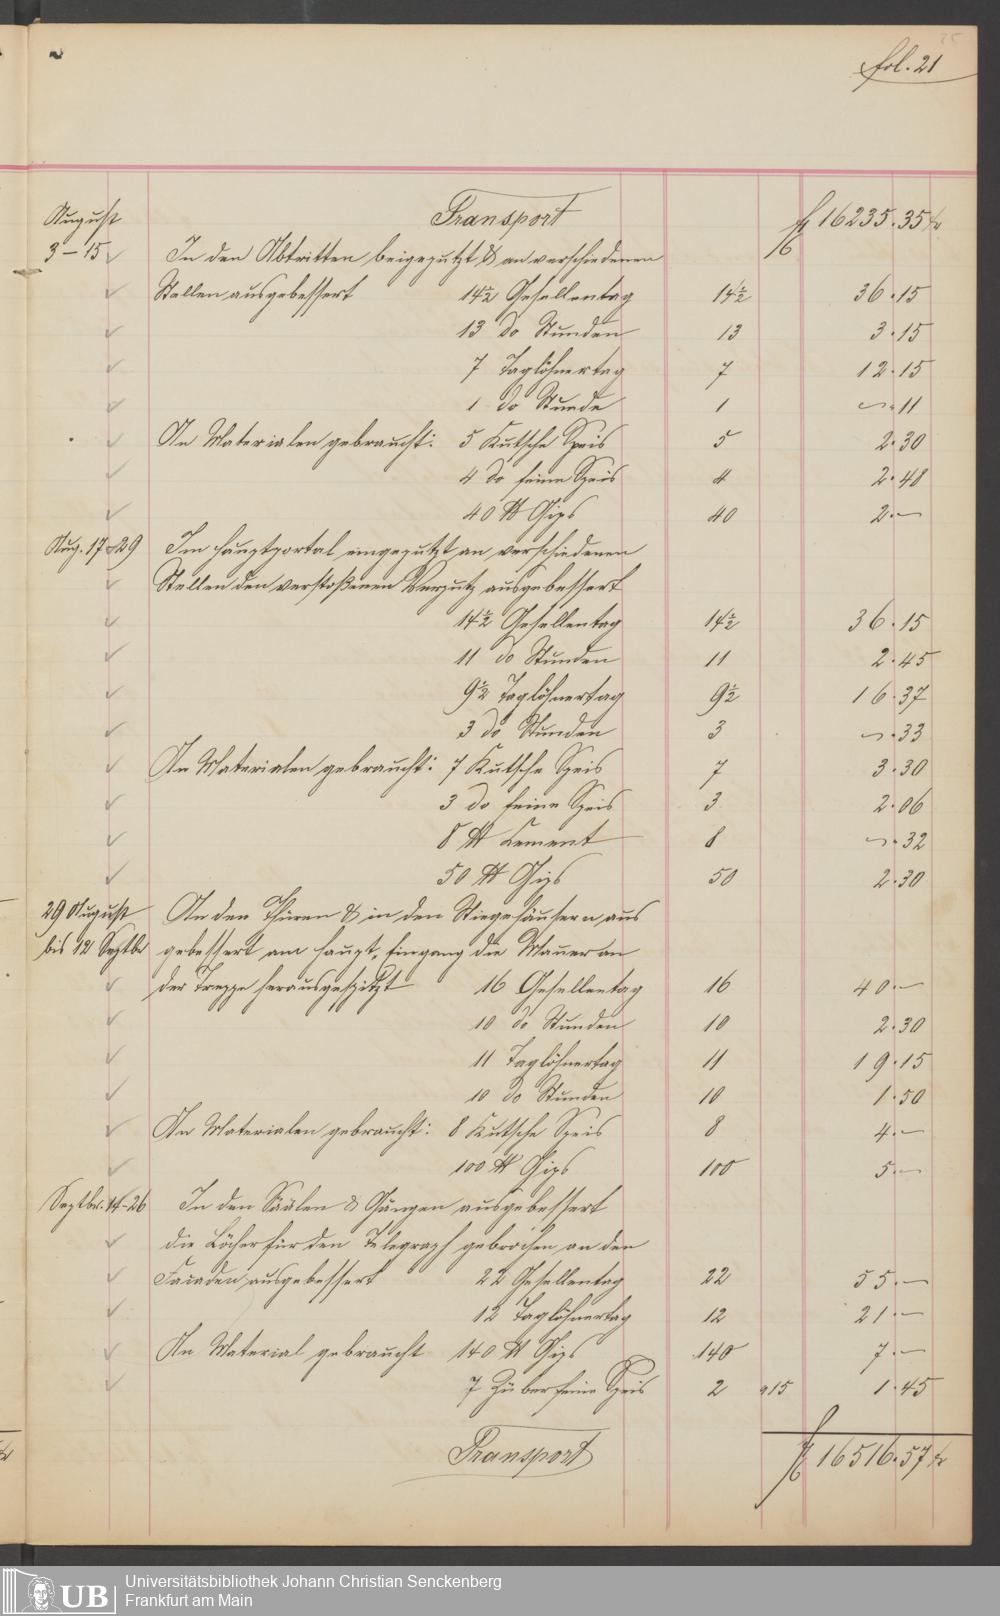 25
fol. 21
August Transport f 16235.35 kr
3–15 In den Abtritten beigeputzt & an verschiedenen
Stellen ausgebessert 14½ Gesellentag 14½ 36.15
13 do Stunden 13 3.15
7 Taglöhnertag 7 12.15
1 do Stunde 1 –.11
An Materialen gebraucht: 5 Kutsche Speis 5 2.30
4 do feine Speis 4 2.48
40 ℔ Gips 40 2.–
Aug. 17–29 Im Hauptportal eingeputzt an verschiedenen
Stellen den verstoßenen Verputz ausgebessert
14½ Gesellentag 14½ 36.15
11 do Stunden 11 2.45
9½ Taglöhnertag 9½ 16.37
3 do Stunden 3 –.33
An Materialen gebraucht: 7 Kutsche Speis 7 3.30
3 do feine Speis 3 2.06
8 ℔ Cement 8 –.32
50 ℔ Gips 50 2.30
29 August An den Thüren & in den Stiegehäusern aus
bis 12 Septbr gebessert am Haupt-Eingang die Mauer an
der Treppe herausgespitzt 16 Gesellentag 16 40.–
10 do Stunden 10 2.30
11 Taglöhnertag 11 19.15
10 do Stunden 10 1.50
An Materialen gebraucht: 8 Kutsche Speis 8 4.–
100 ℔ Gips 100 5.–
Septbr. 14–26 In den Säälen & Gängen ausgebessert
die Löcher für den Telegraph gebrochen an den
Facaden ausgebessert 22 Gesellentag 22 55.–
12 Taglöhnertag 12 21.–
An Material gebraucht 140 ℔ Gips 140 7.–
7 Züber feine Speis 2 a15 1.45
Transport f 16516.57 kr
UB Universitätsbibliothek Johann Christian Senckenberg
Frankfurt am Main